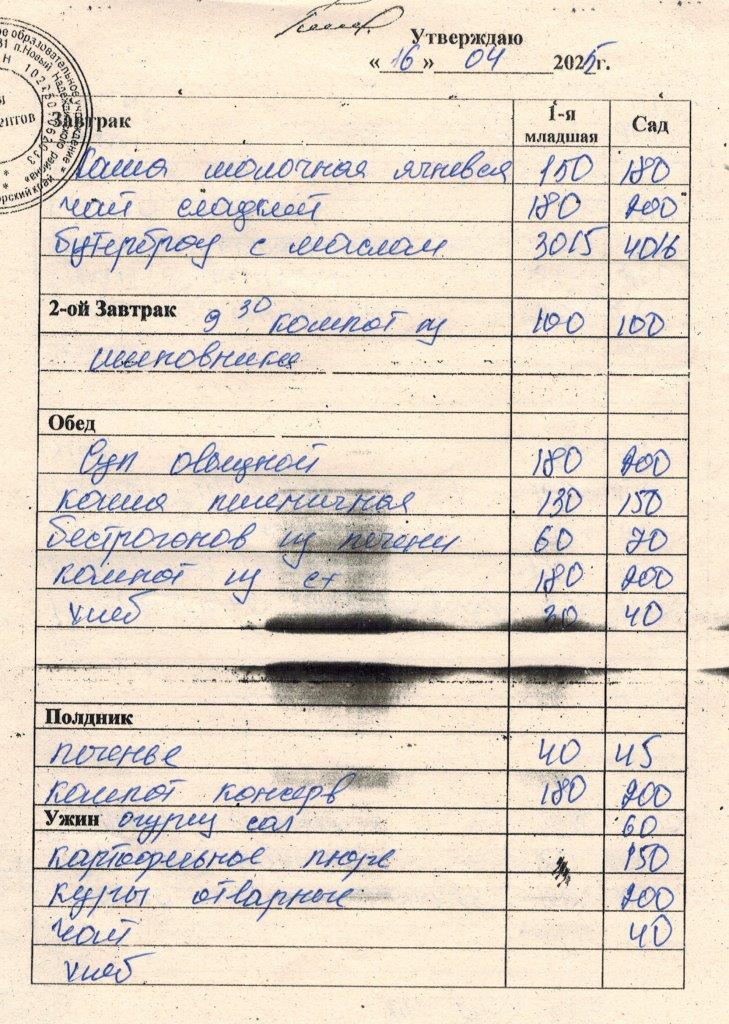 Утверждаю
«16» 04 2025г.
Завтрак 1-я младшая Сад
Каша молочная ячневая 150 180
чай сладкий 180 200
бутерброд с маслом 30/5 40/6
2-ой Завтрак 9 30 компот из 100 100
шиповника
Обед
Суп овощной 180 200
каша пшеничная 130 150
бестрогонов из печени 60 70
компот из с/х 180 200
хлеб 30 40
Полдник
печенье 40 45
компот консерв 180 200
Ужин огурец сол 60
картофельное пюре 150
куры отварные 200
чай 40
хлеб